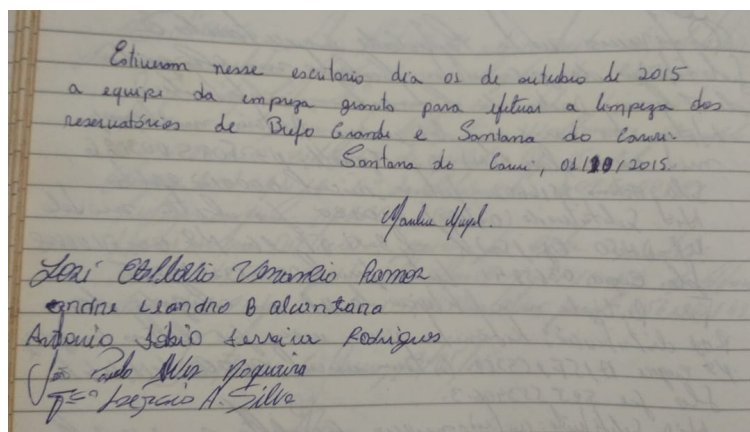 Estiveram nesse escritorio dia 01 de outubro de 2015
a equipe da empreza granito para efetuar a limpeza dos
reservatórios de Brejo Grande e Santana do Cariri.
Santana do Cariri, 01/10/2015.
José Venancio Ramos
andre Leandro B alcantara
Antonio Fábio Ferreira Rodrigues
João Paulo Alves Nogueira
A. Silva